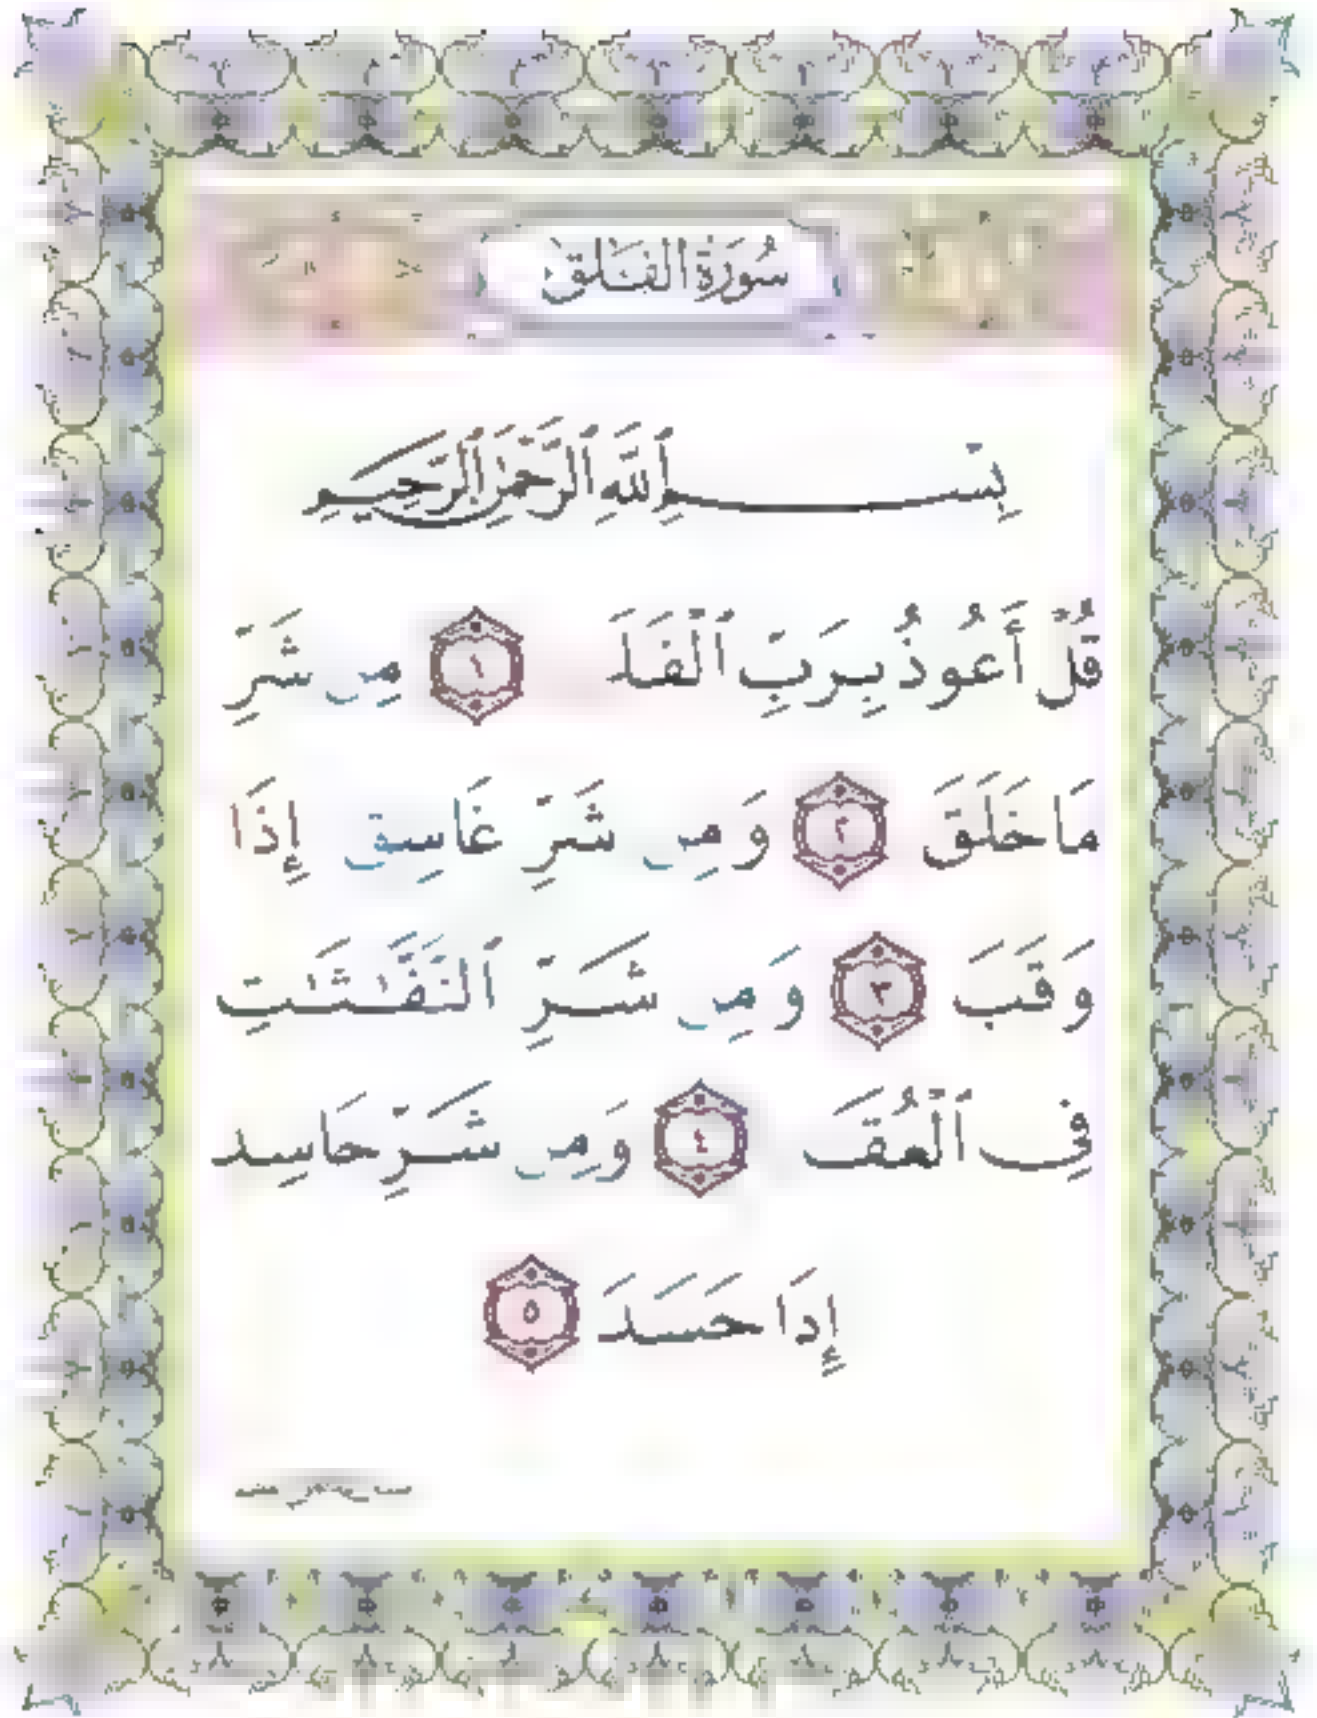 سُورَةُ الفَلَق
بِسْمِ ٱللَّهِ ٱلرَّحْمَٰنِ ٱلرَّحِيمِ
قُلْ أَعُوذُ بِرَبِّ ٱلْفَلَ ١ مِں شَرِّ
مَا خَلَقَ ٢ وَمِں شَرِّ غَاسِقٍ إِذَا
وَقَبَ ٣ وَمِں شَرِّ ٱلنَّفَّٰثَٰتِ
فِى ٱلْعُقَ ٤ وَمِں شَرِّ حَاسِد
إِذَا حَسَدَ ٥